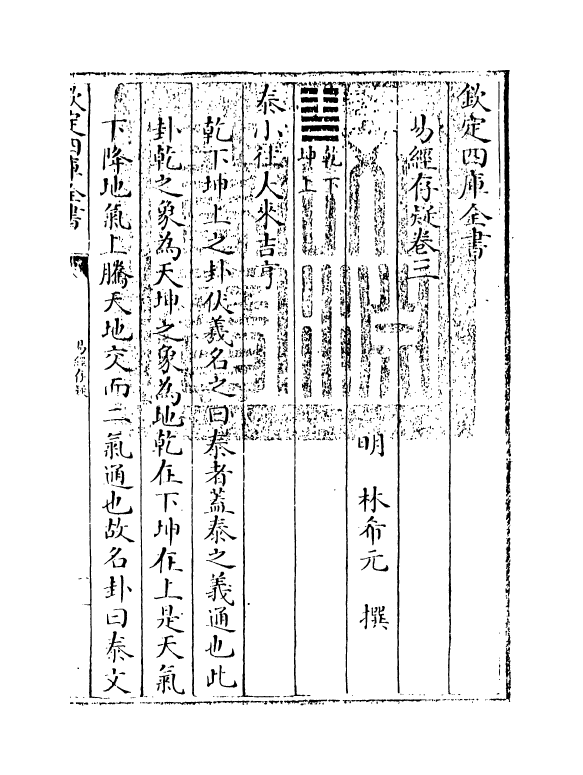 欽定四庫全書
易經存疑卷三
明 林希元 撰
乾下
坤上
泰小往大來吉亨
乾下坤上之卦伏羲名之曰泰者蓋泰之義通也此
卦乾之象為天坤之象為地乾在下坤在上是天氣
下降地氣上騰天地交而二氣通也故名卦曰泰文
欽定四庫全書
易經存疑